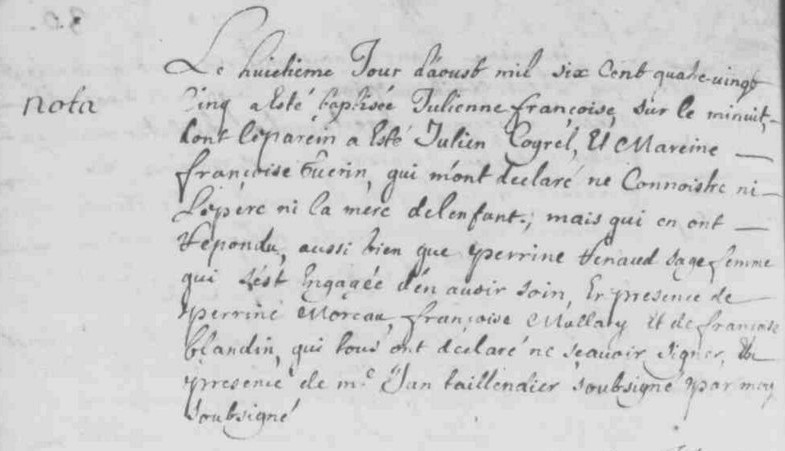 Le huictieme Jour d'aoust mil six Cent quatre-vingt
nota
Cinq a Esté baptisée Julienne françoise, sur le minuit,
dont le parein a Esté Julien Cogrel, Et Mareine
françoise Guerin, qui m'ont declaré ne Connoistre ni
Le pere ni la mere de lenfant, mais qui en ont
repondu, aussi bien que perrine renaud sage femme
qui s'est Engagée d'en auoir soin, En presence de
perrine Moreau, françoise Mallary Et de françoise
blandin, qui tous ont declaré ne sçauoir signer, En
presence de me Jan taillendier soubsigné par moy
soubsigné